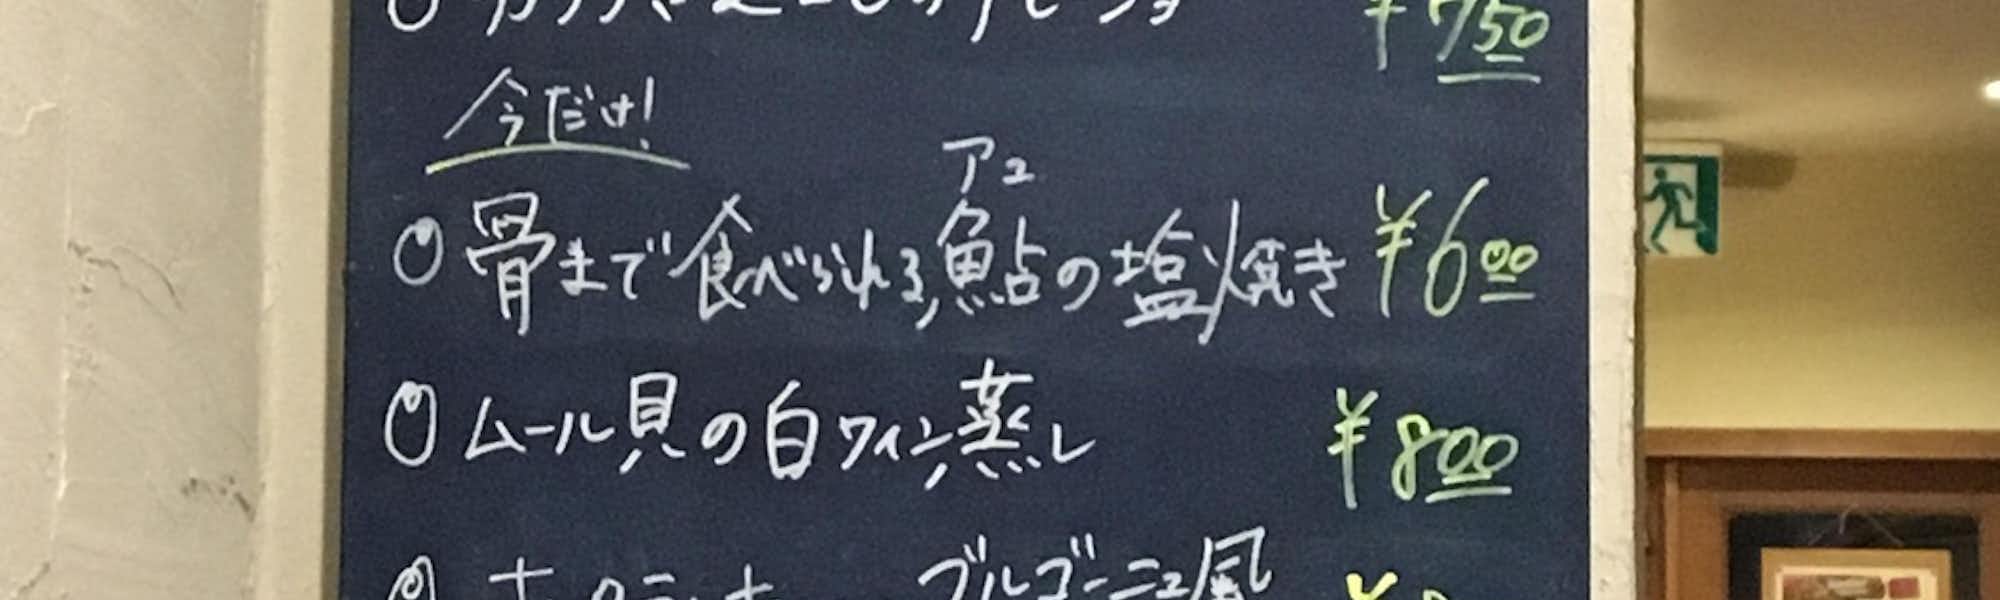 ¥750
今だけ!
アユ
骨まで食べられる,鮎の塩焼き ¥600
ムール貝の白ワイン蒸し ¥800
ブルゴーニュ風